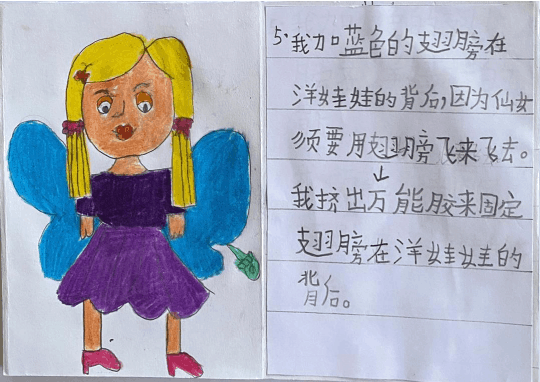 5.我加蓝色的翅膀在
洋娃娃的背后,因为仙女
须要用翅膀飞来飞去。
↓
我挤出万能胶来固定
翅膀在洋娃娃的
背后。